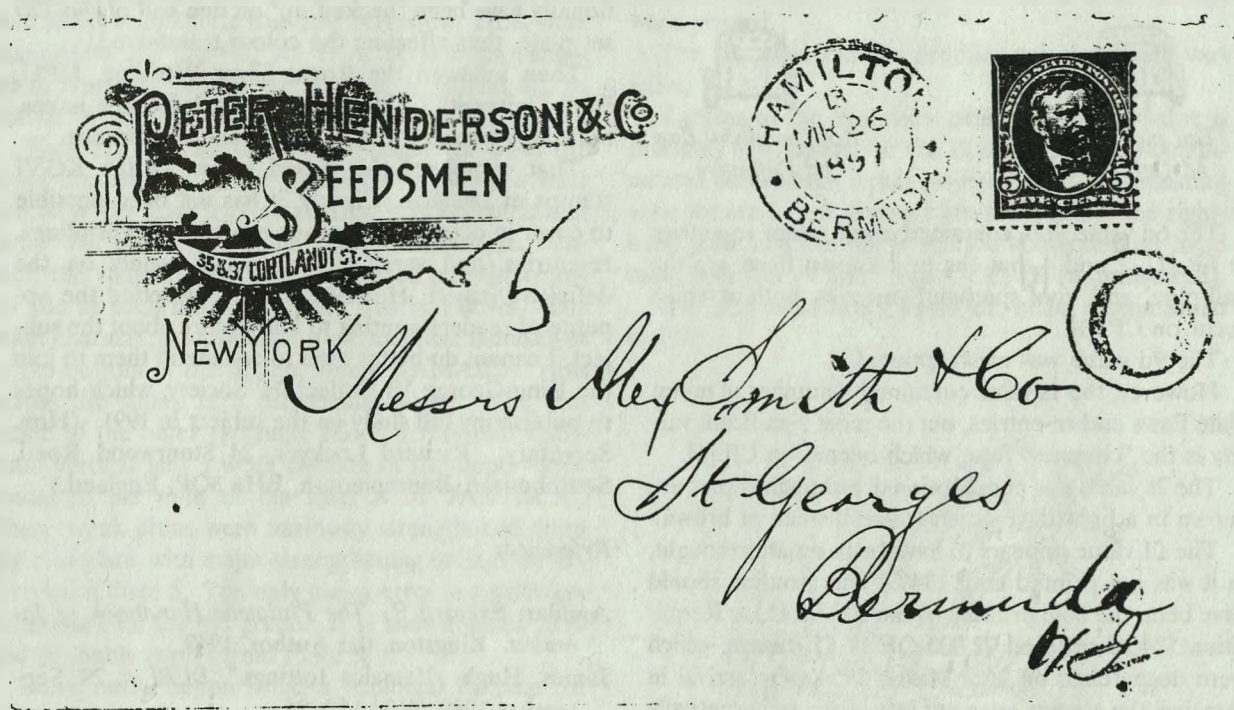 PETER HENDERSON & Co
SEEDSMEN
35 & 37 CORTLANDT ST.
NEW YORK
HAMILTO
B
26
1891
BERMUDA
UNITED STATES
5 5
CENTS
5
Messrs Alex Smith & Co
St Georges
Bermuda